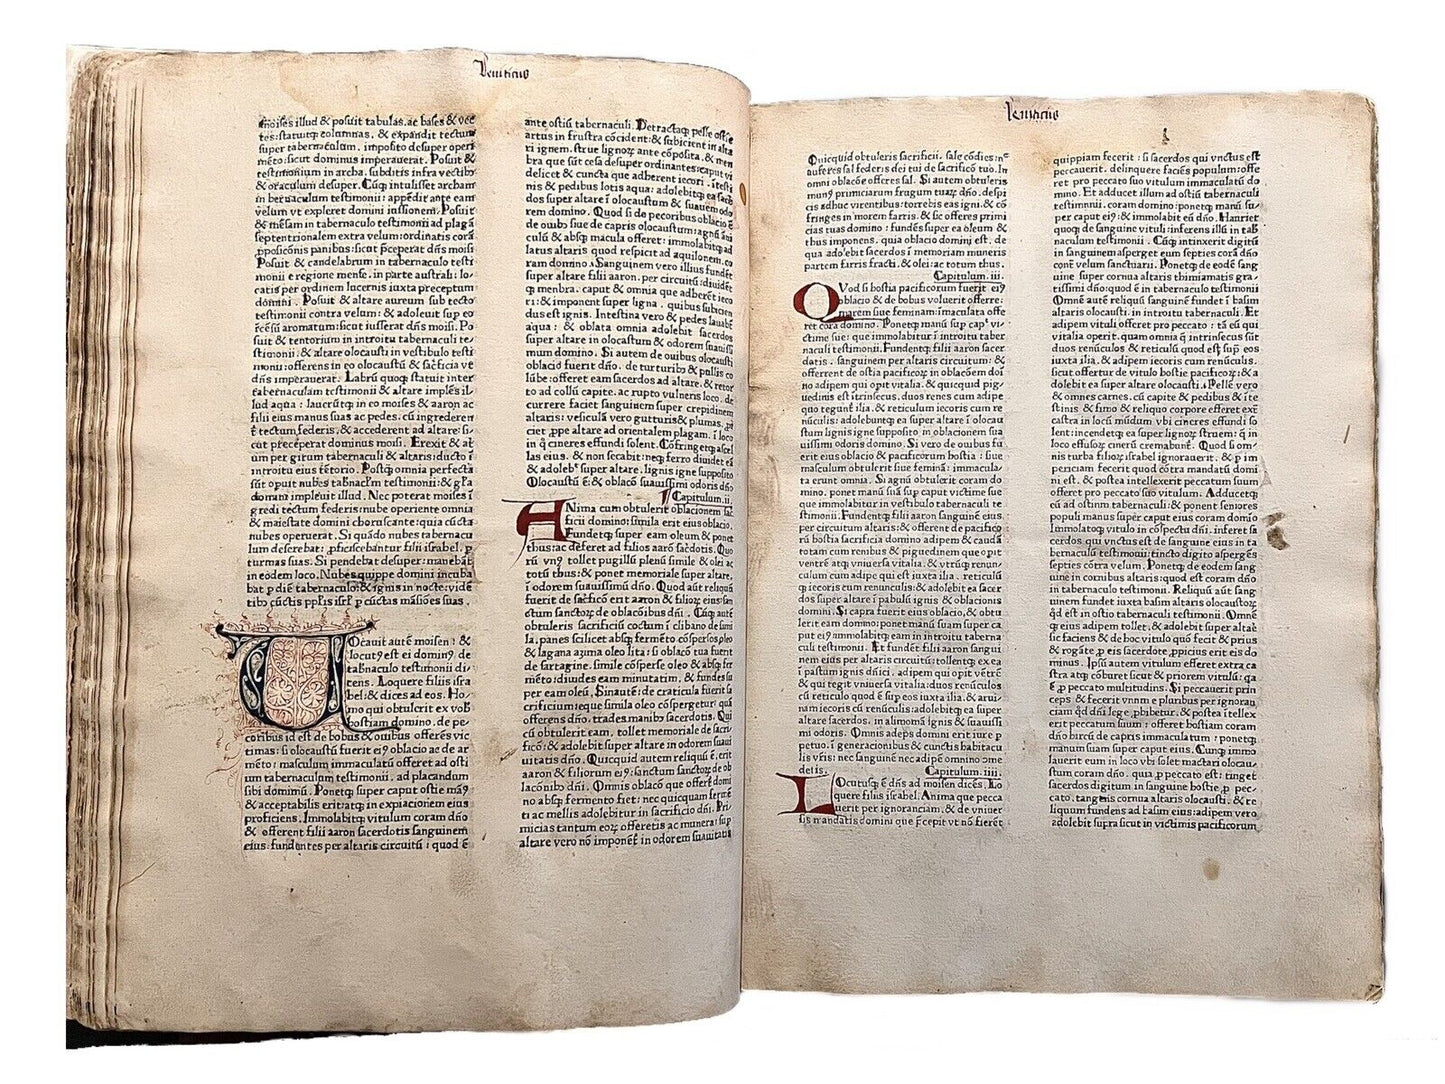 Leuiticus
moises illud & posuit tabulas. ac bases & vec
tes: statuitq; columnas, & expandit tectum
super tabernaculum, imposito desuper operi
mēto: sicut dominus imperauerat. Posuit &
testimonium in archa. subditis infra vectibꝰ
& oraculum desuper. Cūq; intulisset archam
in tabernaculum testimonii: appēdit ante eam
velum vt expleret domini iussionem. Posuit
& mēsam in tabernaculo testimonii ad plagā
septentrionalem extra velum: ordinatis corā
ꝓposicōnis panibus: sicut p̄ceperat dn̄s moisi
Posuit & candelabrum in tabernaculo testi
monii e regione mense. in parte australi: lo/
catis per ordinem lucernis iuxta preceptum
domini. Posuit & altare aureum sub tecto
testimonii contra velum: & adoleuit sup eo
īcēsū aromatum: sicut iusserat dn̄s moisi. Po
suit & tentorium in introitu tabernaculi te/
stimonii: & altare olocausti in vestibulo testi
monii: offerens in eo olocaustū & sac̄ficia vt
dn̄s imperauerat. Labrū quoq; statuit inter
tabernaculam testimonii & altare implēs il/
lud aqua: lauerūtq; in eo moises & aaron ac
filii eius manus suas ac pedes. cū ingrederent̄
tectum federis, & accederent ad altare: si/
cut preceperat dominus moisi. Erexit & at
um per girum tabernaculi & altaris: ducto ī
introitu eius tētorio. Postq̄ omnia perfecta
sūt opuit nubes tabn̄aclm testimonii: & gl'a
domini impleuit illud. Nec poterat moises ī
gredi tectum federis: nube operiente omnia
& maiestate domini choruscante: quia cūcta
nubes operuerat. Si quādo nubes tabernacu
lum deserebat: ꝓficiscebantur filii israhel. ꝑ
turmas suas. Si pendebat desuper: manebāt
in eodem loco. Nubes quippe domini incuba
bat ꝑ diē tabernaculo: & ignis in nocte: vidē
tibꝰ cūctis pplis isrl' ꝑ cūctas māsiōes suas.
VOcauit autē moisen: &
locutꝰ est ei dominꝰ de
tabn̄aculo testimonii di/
cens. Loquere filiis isra
hel: & dices ad eos. Ho/
mo qui obtulerit ex vobꝰ
hostiam domino. de pe/
coribus id est de bobus & ouibus offerēs vic
timas: si olocaustū fuerit eiꝰ oblacio ac de ar
mēto: masculum immaculatū offeret ad osti
um tabernaculum testimonii. ad placandum
sibi dominū. Ponetq; super caput ostie manꝰ
& acceptabilis erit: atq; in expiacionem eius
proficiens. Immolabitq; vitulum coram dn̄o
& offerent filii aaron sacerdotis sanguinem
eius: fundentes per altaris circuitū: quod ē
ante ostiū tabernaculi. Detractaq; pelle ostie
artus in frustra cōcident: & subicient in alta
ri ignem. strue lignoꝝ ante cōposita, & mem
bra que sūt cesa desuper ordinantes: caput vi
delicet & cuncta que adherent iecori. itesti
nis & pedibus lotis aqua: adolebitq; ea sac̄
dos super altare ī olocaustum & suauem odo
rem domino. Quod si de pecoribus oblacio ē
de ouibꝰ siue de capris olocaustum: agnū āni
culū & absq; macula offeret: immolabitq; ad
latus altaris quod respicit ad aquilonem. co
ram domino. Sanguinem vero illius fundēt
super altare filii aaron. per circuitū: diuidēt
q; menbra. caput & omnia que adherēt ieco
ri: & imponent super ligna. quibus subicien
dus est ignis. Intestina vero & pedes lauabūt
aqua: & oblata omnia adolebit sacerdos
super altare in olocaustum & odorem suauissi
mum domino. Si autem de ouibus olocausti
oblacio fuerit dn̄o. de turturibꝰ & pullis co
lūbe: offeret eam sacerdos ad altare. & retor
to ad collū capite. ac rupto vulneris loco. de
currere faciet sanguinem super crepidinem
altaris: vesiculā vero gutturis & plumas. ꝓi
ciet ꝓpe altare ad orientalem plagam. ī loco
in q̄ cineres effundi solent. Cōfringetq; ascel
las eius. & non secabit: neq; ferro diuidet eā
& adolebꝰ super altare. lignis igne supposito
Olocaustū ē: & oblacō suauissimi odoris dn̄o
Capitulum.ii.
ANima cum obtulerit oblacionem sac̄
ficii domino: simila erit eius oblacio.
Fundetq; super eam oleum & ponet
thus: ac deferet ad filios aarō sac̄dotis. Quo
rū vnꝰ tollet pugillū plenū simile & olei ac
totū thus: & ponet memoriale super altare,
ī odorem suauissimū dn̄o. Quod aūt reliquū
fuerit de sac̄ficō erit aaron & filioꝝ eius: san
ctum sanctoꝝ de oblacōibus dn̄i. Cūq; autē
obtuleris sacrificiū coctum ī clibano de simi
la. panes scilicet absq; fermēto cōspersos oleo
& lagana azima oleo lita: si oblacō tua fuerit
de sartagine. simile cōsperse oleo & absq; fer
mēto: diuides eam minutatim, & fundes su
per eam oleū. Sinautē de craticula fuerit sa
crificium: eque simila oleo cōspergetur quā
offerens dn̄o. trades manibꝰ sacerdotis. Qui
cū obtulerit eam, tollet memoriale de sacri/
ficō: & adolebit super altare in odorem suaui
uitatis dn̄o. Quicquid autem reliquū ē. erit
aaron & filiorum eiꝰ: sanctum sanctoꝝ de ob
lacōnibꝰ dn̄i. Omnis oblacō que offert̄ domi
no absq; fermento fiet: nec quicquam fermē
ti ac mellis adolebitur in sacrificio dn̄i. Pri/
micias tantum eoꝝ offeretis ac munera: sup
altare vero nō imponēt̄ in odorem suauitatis
Leuiticus
Quicquid obtuleris sacrificii. sale cōdies: nec
auferes sal federis dei tui de sacrificō tuo. In
omni oblacōe offeres sal. Si autem obtuleris
munus primiciarum frugum tuaꝝ dn̄o. despi
cis adhuc virentibus: torrebis eas igni. & cō
fringes in morem farris. & sic offeres primi
cias tuas domino: fundēs super ea oleum &
thus imponens. quia oblacio domini est. de
qua adolebit sacerdos ī memoriam muneris
partem farris fracti. & olei: ac totum thus.
Capitulum. iii.
QVod si hostia pacificorum fuerit eiꝰ
oblacio & de bobus voluerit offerre:
marem siue feminam: immaculata offe
ret corā domino. Ponetq; manū sup cap' vi/
ctime sue: que immolabitur ī introitu taber
naculi testimonii. Fundentq; filii aaron sacer
dotis. sanguinem per altaris circuitum: &
offerrent de ostia pacificorum in oblacōem domi
no adipem qui opit vitalia. & quicquid pig/
uedinis est intrinsecus. duos renes cum adipe
quo tegunt̄ ilia. & reticulum iecoris cum re
nūculis: adolebuntq; ea super altare ī olocau
stum lignis igne supposito in oblacionem sua
uissimi odoris domino. Si vero de ouibus fu
erit eius oblacio & pacificorum hostia: siue
masculum obtulerit siue feminā: immacula
ta erunt omnia. Si agnū obtulerit coram do
mino. ponet manū suā sup caput victime sue
que immolabitur in vestibulo tabernaculi te
stimonii. Fundentq; filii aaron sanguinem eius
per circuitum altaris: & offerent de pacifico
rū hostia sacrificia domino adipem & caudā
totam cum renibus & piguedinem que opit
ventrē atq; vniuersa vitalia. & vtrūq; renun/
culum cum adipe qui est iuxta ilia. reticulū
q; iecoris cum renunculis. & adolebit ea sacer
dos super altare ī pabulū ignis & oblacionis
domini. Si capra fuerit eius oblacio, & obtu
lerit eam domino: ponet manū suam super ca
put eiꝰ: immolabitq; eam in introitu taberna
culi testimonii. Et fundēt filii aaron sangui
nem eius per altaris circuitū: tollentq; ex ea
ī pastum ignis dn̄ici. adipem qui opit vētrē
& qui tegit vniuersa vitalia: duos renūculos
cū reticulo quod ē sup eos iuxta ilia. & arui/
nam iecoris cū renūculis: adolebitq; ea super
altare sacerdos. in alimoniā ignis & suauissi
mi odoris. Omnis adeps domini erit iure ꝑ
petuo. ī generacionibus & cunctis habitacu
lis vr̄is: nec sanguinem nec adipem omnino ome
detis. Capitulum. iiii.
LOcutusq; ē dn̄s ad moisen dicēs. Lo
quere filiis israhel. Anima que pecca
uerit per ignoranciam. & de vniuer
sis mandatis domini que p̄cepit vt nō fierēt
quippiam fecerit: si sacerdos qui vnctus est
peccauerit. delinquere faciēs populum: offe
ret pro peccato suo vitulum immaculatū do
mino. Et adducet illum ad ostiū tabernaculi
testimonii. coram domino: ponetq; manū su
per caput eiꝰ & immolabit eū dn̄o. Hauriet
quoq; de sanguine vituli: inferens illū in tab̄
naculum testimonii. Cūq; intinxerit digitū
in sanguinem asperget eum septies corā dn̄o
contra velum sanctuarii. Ponetq; de eodē sang
uine super cornua altaris thimiamatis gra/
tissimi dn̄o: quod ē in tabernaculo testimonii
Omnē autē reliquū sanguinē fundet ī basim
altaris olocausti. in introitu tabernaculi. Et
adipem vituli offeret pro peccato: tā eū qui
vitalia operit. quam omnia q̄ intrinsecus sūt
duos renūculos & reticulū quod est sup eos
iuxta ilia. & adipem iecoris cum renūculis.
sicut offertur de vitulo hostie pacificoꝝ: & a
dolebit ea super altare olocausti. Pellē vero
& omnes carnes. cū capite & pedibus & īte
stinis & fimo & reliquo corpore efferet extra
castra in locū mūdum vbi cineres effundi so
lent: incendetq; ea super lignoꝝ struem: q̄ in
loco effusoꝝ cinerū cremabunt̄. Quod si om/
nis turba filioꝝ israhel ignorauerit, & ꝑ im
periciam fecerit quod cōtra mandatū domi
ni est. & postea intellexerit peccatum suum
offeret pro peccato suo vitulum. Adducetq;
eū ad ostium tabernaculi: & ponent seniores
populi manus super caput eius coram domino
Immolatoq; vitulo in cōspectu dn̄i. inferet sa
cerdos qui vnctus est de sanguine eius in tab̄
naculū testimonii: tincto digito aspergēs
septies cōtra velum. Ponetq; de eodem sang
uine in cornibus altaris: quod est coram dn̄o
in tabernaculo testimonii. Reliquū aūt sang
uinem fundet iuxta basim altaris olocaustoꝝ
qd̄ est in ostio tabernaculi testimonii. Omnē
q; eius adipem tollet. & adolebit super altare
sic faciens & de hoc vitulo quō fecit & prius
& rogāte ꝓ eis sacerdote. ꝓpicius erit eis do
minus. Ipsū autem vitulum efferet extra ca
stra atq; cōburet sicut & priorem vitulum: q
a ē ꝓ peccato multitudinis. Si peccauerit prin
ceps & fecerit vnum e pluribus per ignoran/
ciam qd̄ dn̄i lege ꝓhibetur. & postea itellex
erit peccatum suum: offeret hostiam coram
dn̄o hircū de capris immaculatum: ponetq;
manum suam super caput eius. Cunq; immo
lauerit eum in loco vbi solet mactari olocau/
stum coram dn̄o. quia ꝓ peccato est: tinget
sacerdos digitum in sanguine hostie ꝓ pec/
cato. tangens cornua altaris olocausti. & re
liquum fundens ad basim eius: adipem vero
adolebit supra sicut in victimis pacificorum